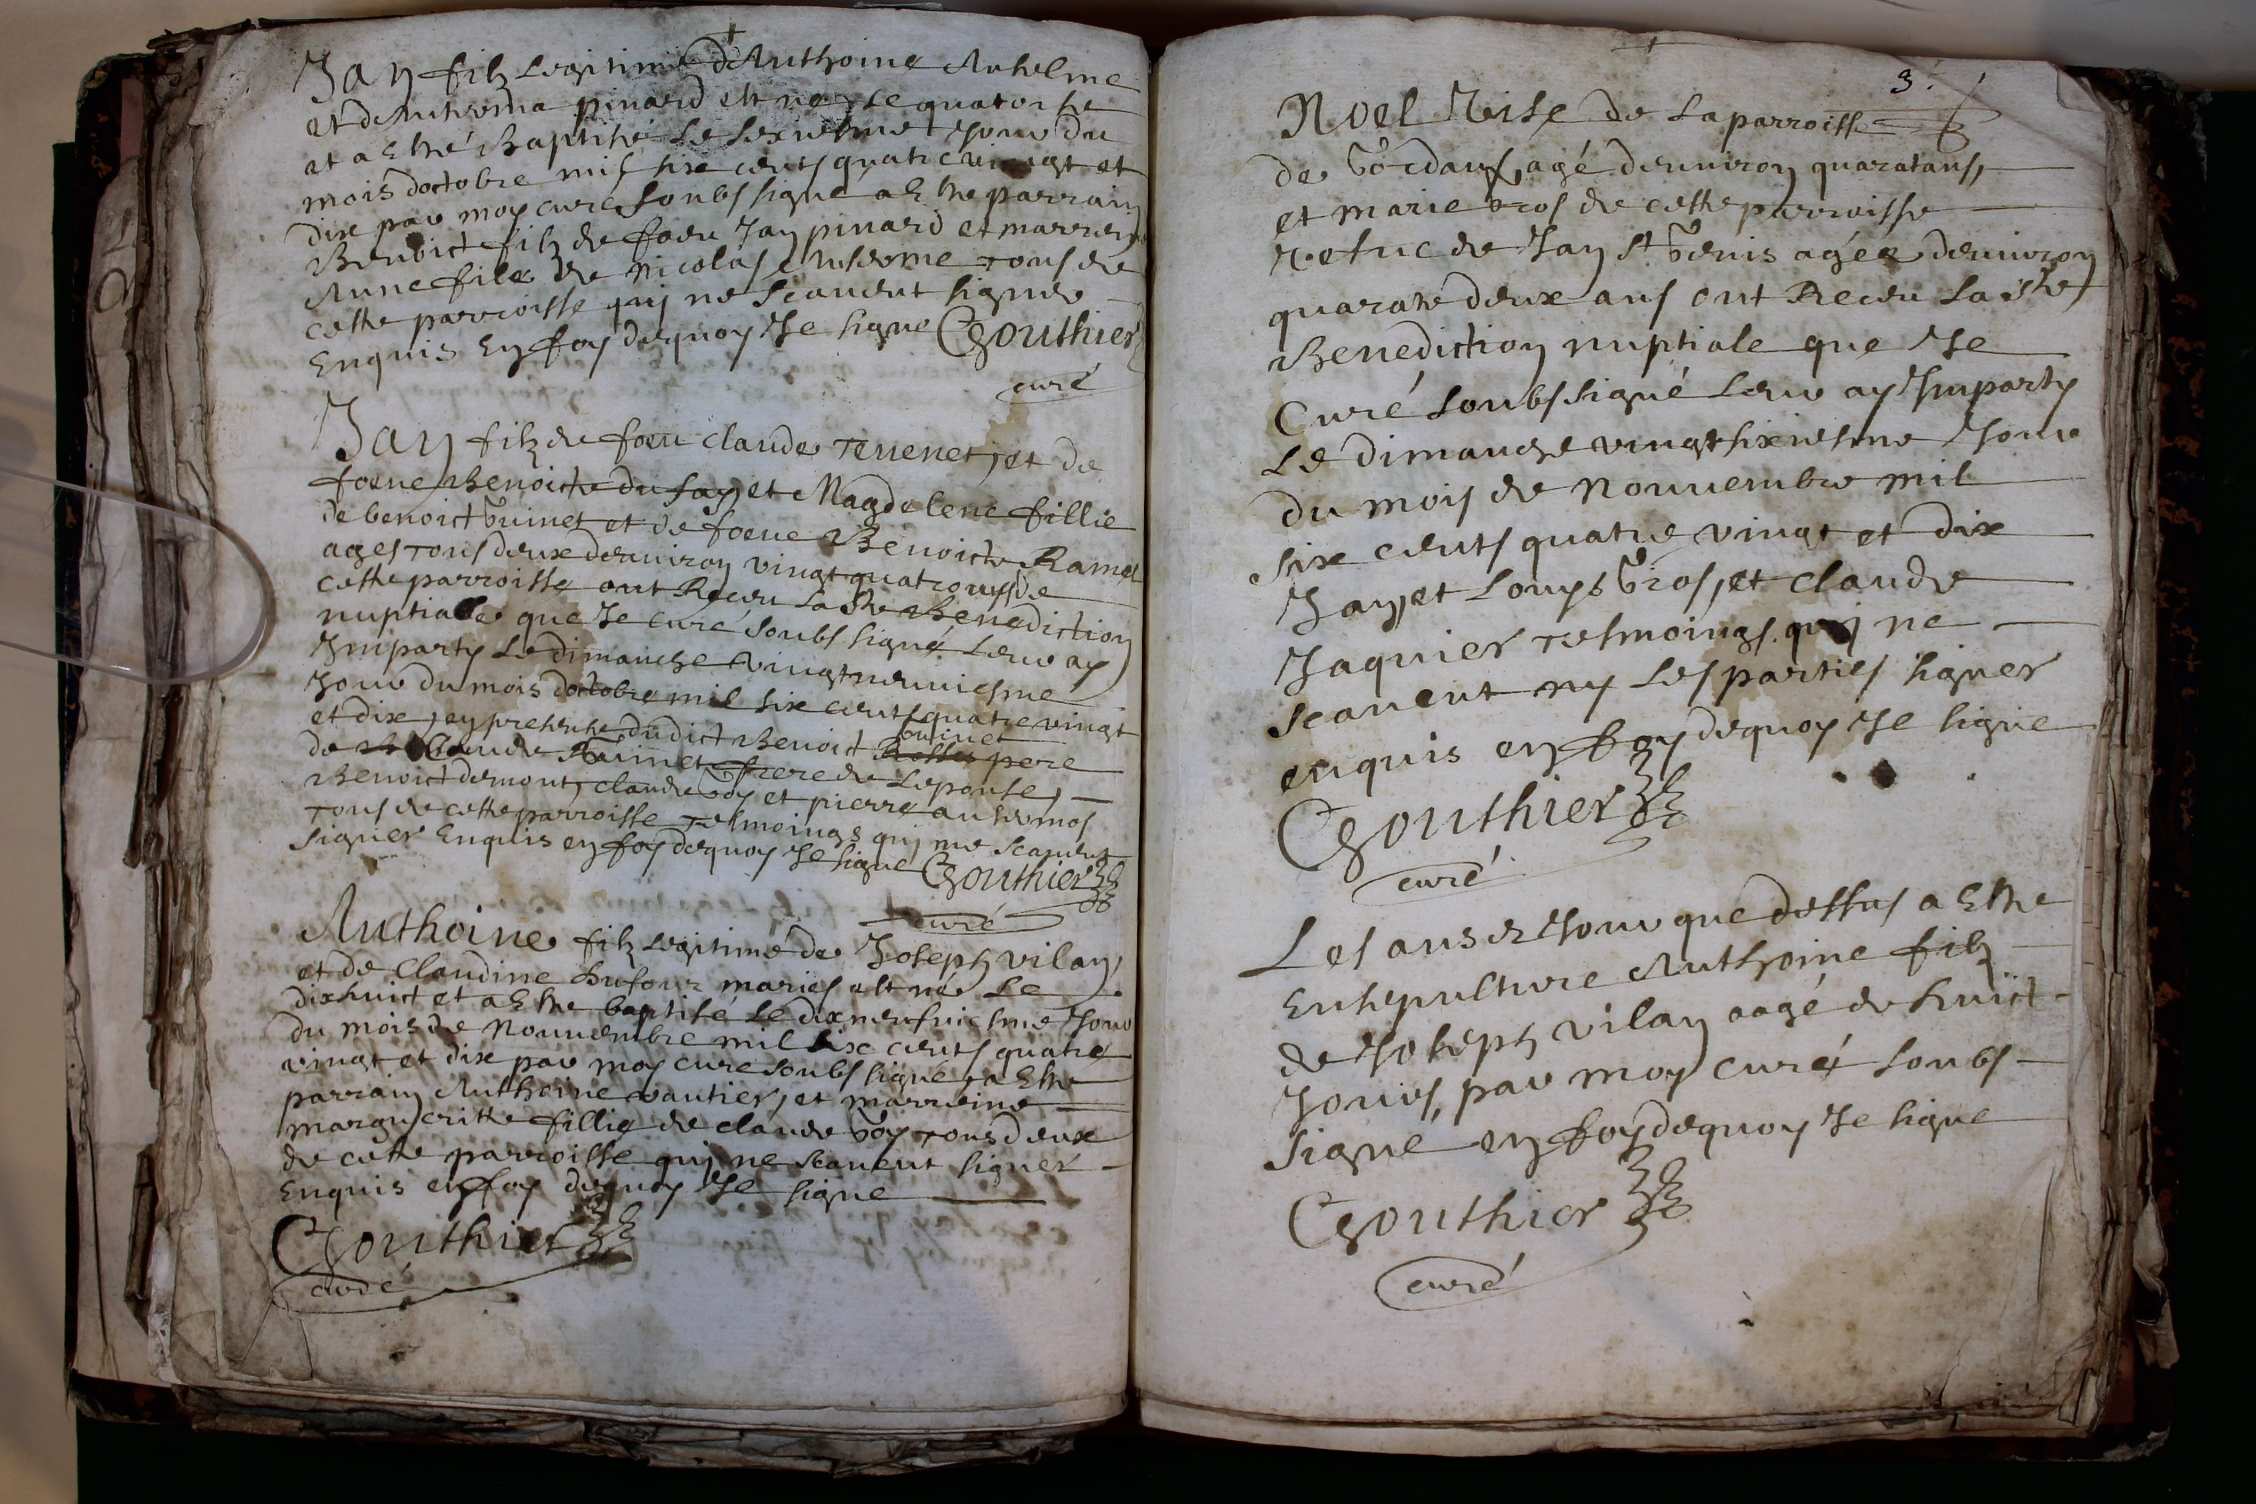 Jan filz legitime d'Anthoine Anselme
et d'Anthoina pinard est ne le quatorse
et a esté Baptisé le sesiesme Jour du
mois d'octobre mil six cents quatre vingt et
dix par moy curé soubs signé a esté parrain
Benoict filz de foeu Jan pinard et marrene
Anne file de Nicolas Anselme tous de
cette parroisse qui ne scavent signer
Enquis En foy dequoy Je signe Gouthier
curé
Jan filz de foeu Claude Tevenet, et de
foeue Benoicte du fay et Magdelene fillie
de benoict Guinet et de foeue Benoicte Ramel
ages tous deux denviron vingt quatre ans de
cette parroisse ont Receu la ste Benediction
nuptiale que Je curé soubs signé leur ay
Imparty le dimanche vingtneuviesme
Jour du mois doctobre mil six cents quatre vingt
et dix, en presence dudict Benoict guinet pere
de Claude Guinet frere de Lepouse,
Benoict dumont, claude Goy et pierre anselmos
tous de cette parroisse tesmoings qui ne scavent
signer Enquis en foy dequoy Je signe Gouthier
curé
Anthoine filz legitime de Joseph vilan,
et de Claudine Dufour maries est né le
dixhuict et a Este baptisé le dixneufviesme Jour
du mois de Nouvembre mil six cents quatre
vingt et dix par moy curé soubs signé, a Este
parrain Anthoine vautier, et marreine
margueritte fillie de claude Goy tous deux
de cette parroisse qui ne scavent signer
Enquis en foy dequoy Je signe
Gouthier
curé
3.
Noel Teise de la parroisse
de agé denviron quaratans,
et marie gros de cette parroisse
vefue de Jan st Genis agée denviron
quarate deux ans ont Receu la ste
Benediction nuptiale que Je
Curé soubs signé leur ay Imparty
le dimanche vingt sixiesme Jour
du mois de Nouvembre mil
six cents quatre vingt et dix
Jan, et Louys Gros, et Claude
Jaquier tesmoings qui ne
scavent ny les parties signer
enquis en foy dequoy Je signe
Gouthier
curé
Les ans et Jour que dessus a Este
Ensepulture Anthoine filz
de Joseph vilan aagé de huict
Jours, par moy curé soubs
signé en foy dequoy Je signe
Gouthier
curé